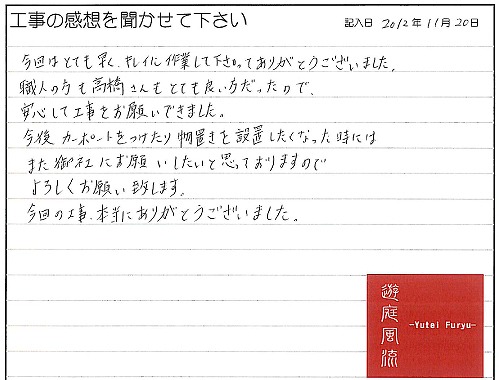 工事の感想を聞かせて下さい
記入日 2012年 11月 20日
今回はとても早く、キレイに作業して下さってありがとうございました。
職人の方も高橋さんもとても良い方だったので、
安心して工事をお願いできました。
今後 カーポートをつけたり物置きを設置したくなった時には
また御社にお願いしたいと思っておりますので
よろしくお願い致します。
今回の工事、本当にありがとうございました。
遊庭風流
-Yutei Furyu-